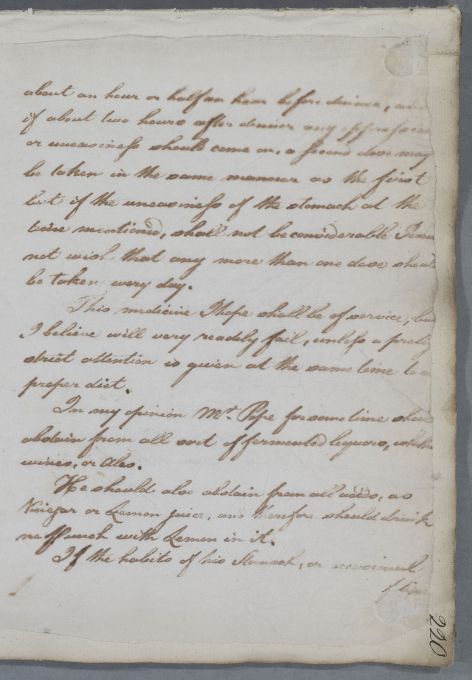 about an hour or half an hour before dinner, and
if about two hours after dinner any oppression
or uneasiness should come on, a second dose may
be taken in the same manner as the first
but if the uneasiness of the stomach at the
time mentioned, shall not be considerable I
not wish that any more than one dose should
be taken every day.
This medicine I hope shall be of service, but
I believe will very readily fail, unless a pretty
strict attention is given at the same time to a
proper diet.
In my opinion Mr. Pope for sometime should
abstain from all sort of fermented liquors, whether
wines, or Ales.
He should also abstain from all acids, as
Vinegar or Lemon juice, and therefore should drink
no Punch with Lemon in it.
If the habits of his Stomach, or
220